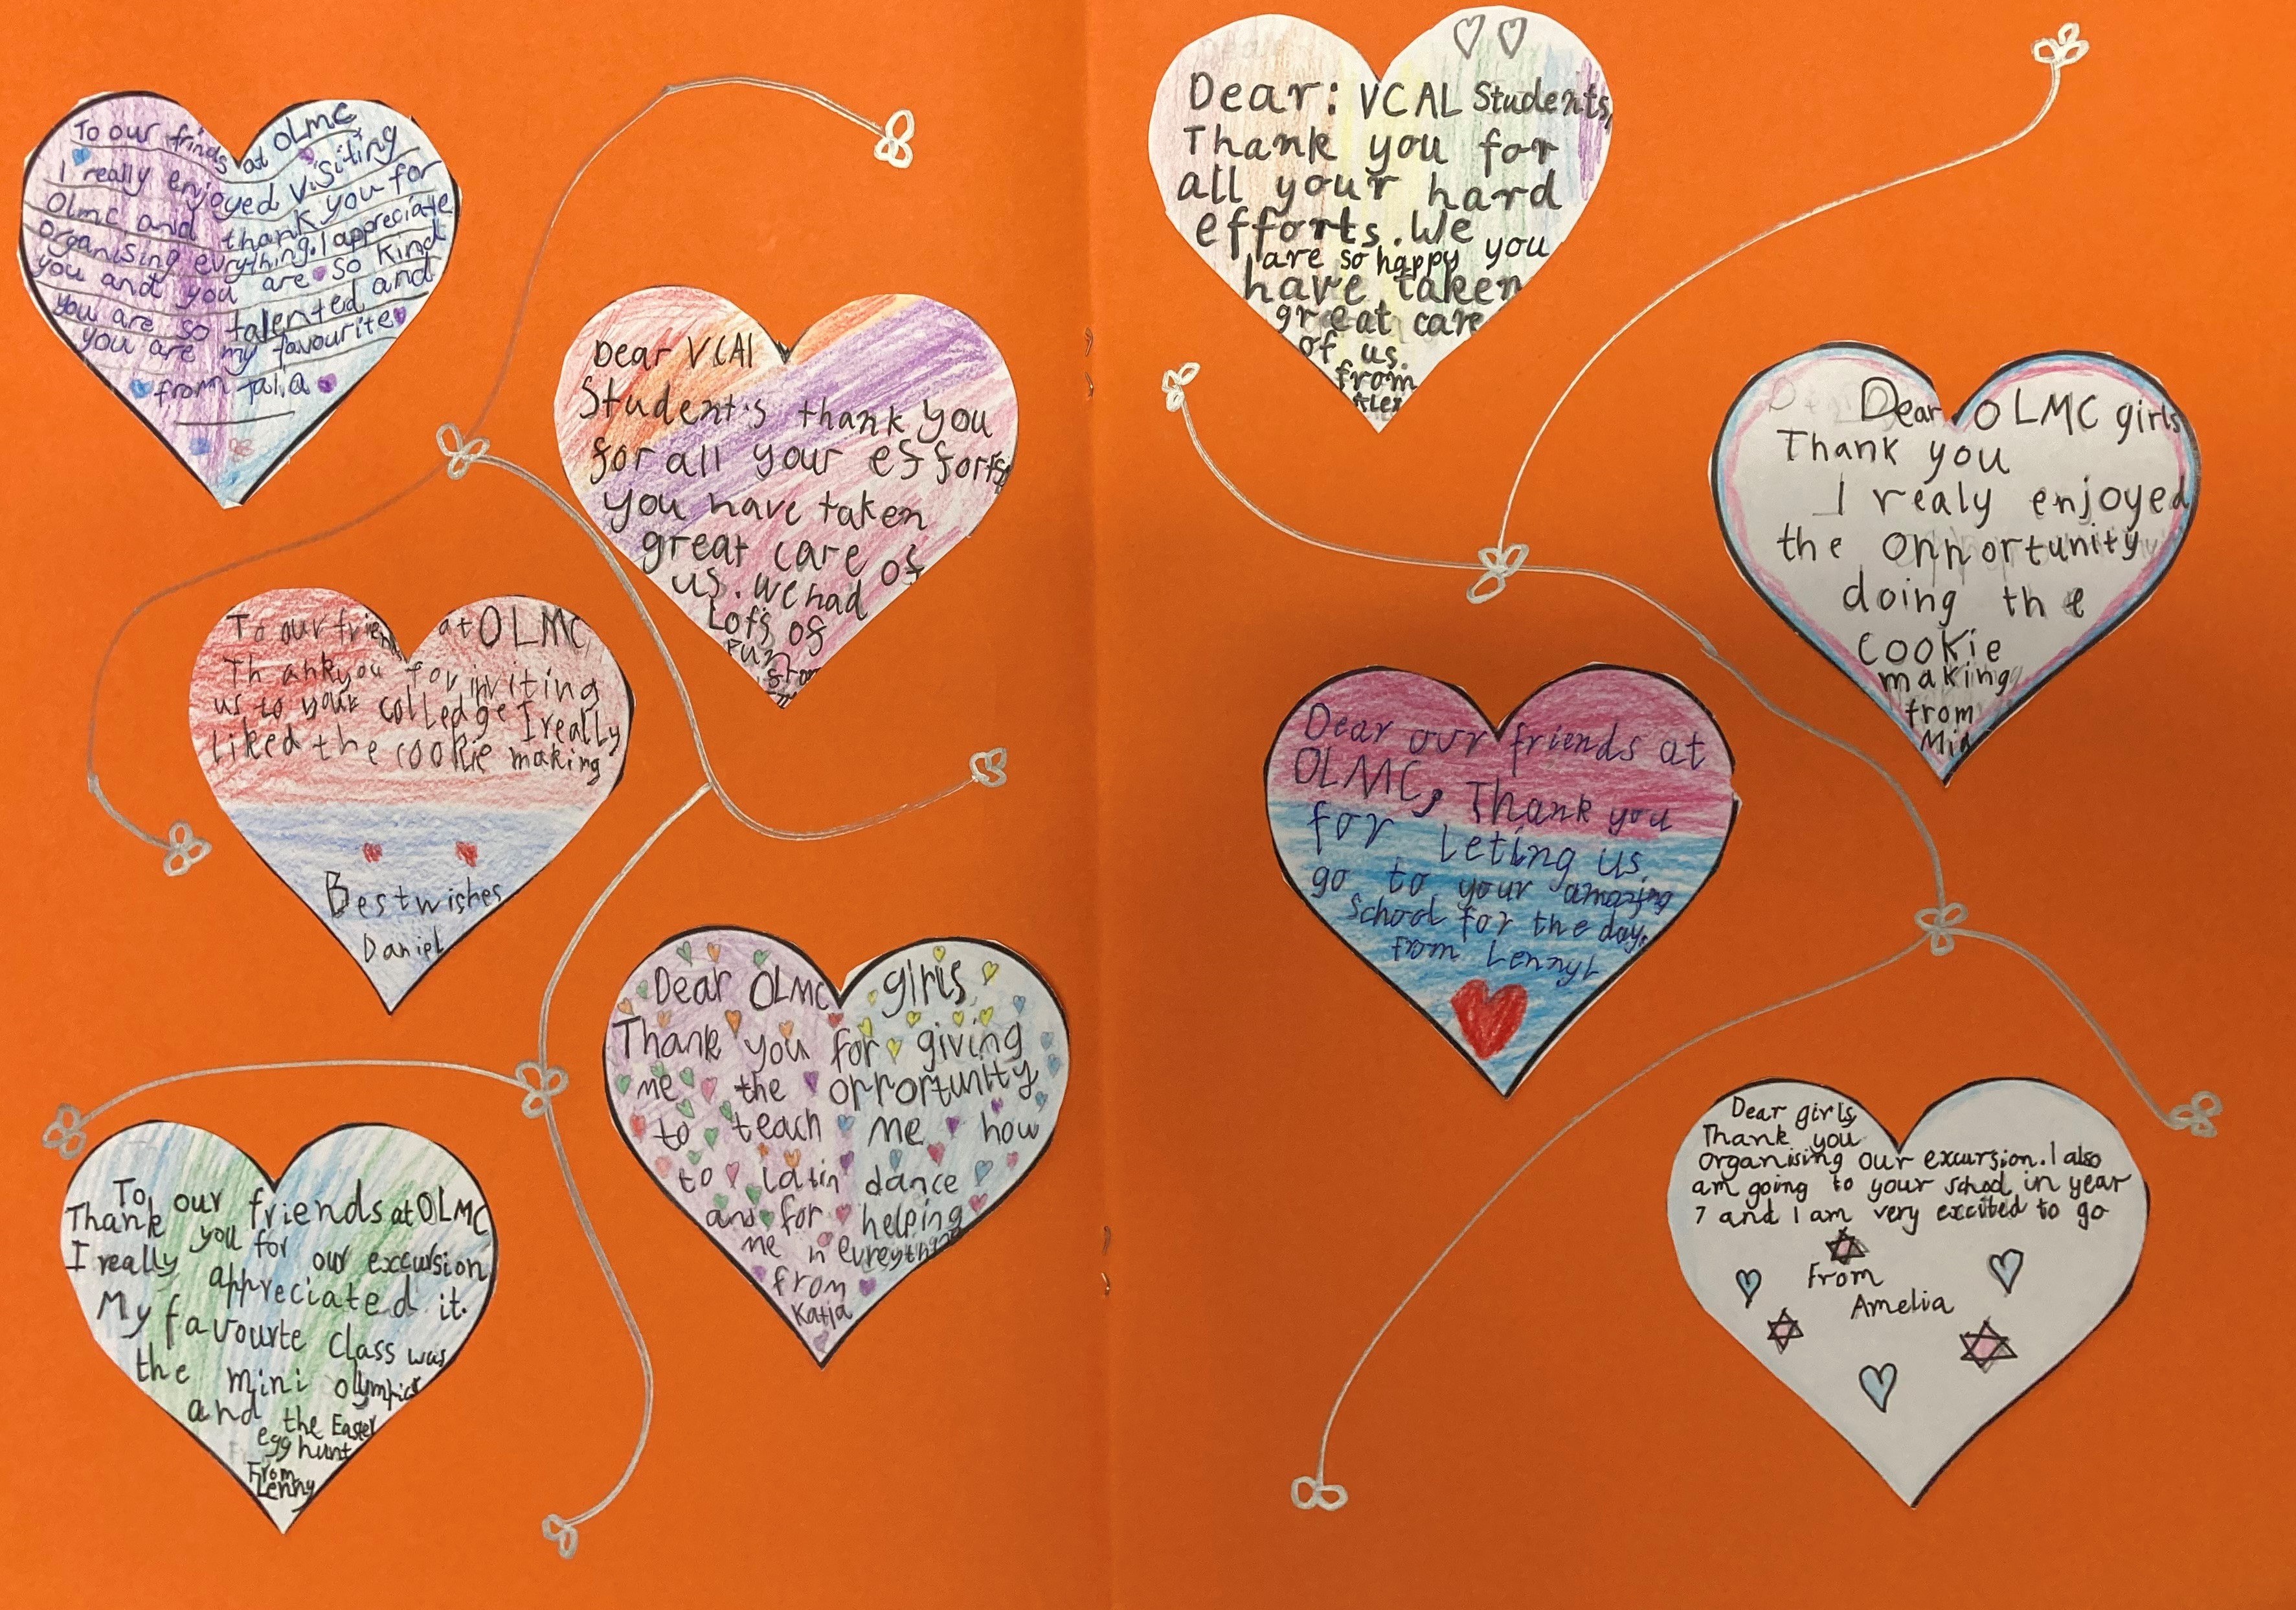 To our frinds at OLMC
I really enjoyed visiting
Olmc and thank you for
organising evrything. I appreciate
you and you are so kind
you are so talented and
you are my favourite
from Talia
Dear VCAl
Students thank you
for all your efforts
you have taken
great care of
us. we had
Lots of
Fun
To our friends at OLMC
Thankyou for inviting
us to your colledge I really
liked the cookie making
Best wishes
Daniel
Dear OLMC girls
Thank you for giving
me the opportunity
to teach me how
to latin dance
and for helping
me
from
Katja
To our friends at OLMC
Thank you for our excursion
I really appreciated it.
My favourte class was
the mini olympics
and the Easter
egg hunt
From
Lenny
Dear: VCAL Students,
Thank you for
all your hard
efforts. We
are so happy you
have taken
great care
of us.
from
Alex
Dear OLMC girls
Thank you
I realy enjoyed
the opportunity
doing the
cookie
making
from
Mia
Dear our friends at
OLMC, Thank you
for leting us
go to your amazing
school for the day.
from Lenny L
Dear girls
Thank you
organising our excursion. I also
am going to your school in year
7 and I am very excited to go
From
Amelia